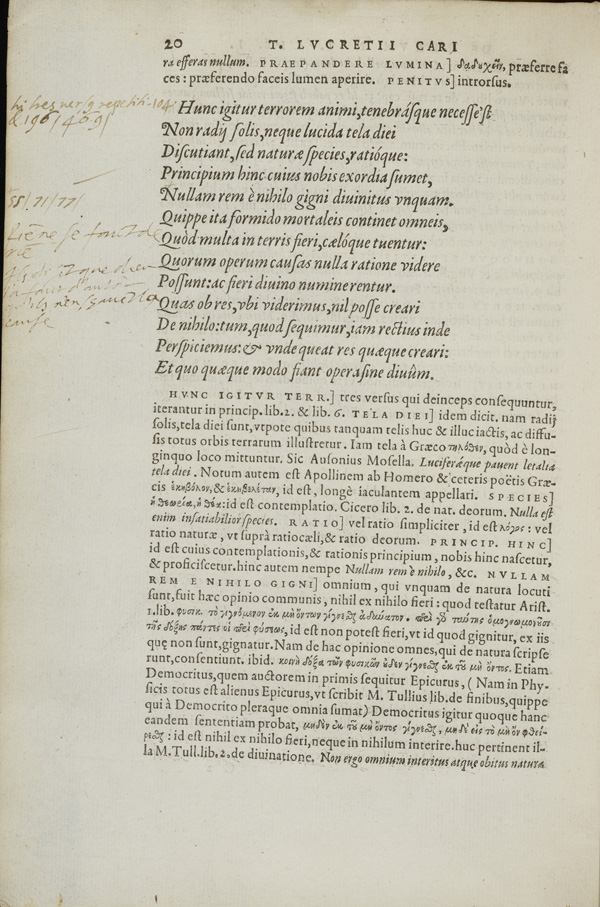 20 T. LVCRETII CARI
ra efferas nullum. PRAEPANDERE LVMINA] δᾳδυχεῖν, præferre fa
ces : præferendo faceis lumen aperire. PENITVS] introrsus.
Hunc igitur terrorem animi, tenebrásque necesse'st
Non radij solis, neque lucida tela diei
Discutiant, sed naturæ species, ratióque:
Principium hinc cuius nobis exordia sumet,
Nullam rem è nihilo gigni diuinitus vnquam.
Quippe ita formido mortaleis continet omneis,
Quòd multa in terris fieri, cælóque tuentur:
Quorum operum causas nulla ratione videre
Possunt: ac fieri diuino numine rentur.
Quas ob res, vbi viderimus, nil posse creari
De nihilo: tum, quod sequimur, iam rectius inde
Perspiciemus: & vnde queat res quæque creari:
Et quo quæque modo fiant opera sine diuûm.
HVNC IGITVR TERR.] tres versus qui deinceps consequuntur,
iterantur in princip. lib. 2. & lib. 6. TELA DIEI] idem dicit. nam radij
solis, tela diei sunt, vtpote quibus tanquam telis huc & illuc iactis, ac diffu-
sis totus orbis terrarum illustretur. Iam tela à Græco τηλόθεν, quòd è lon-
ginquo loco mittuntur. Sic Ausonius Mosella. Luciferæque pauent letalia
tela diei. Notum autem est Apollinem ab Homero & ceteris poëtis Græ-
cis ἑκηβόλον, & ἑκηβελέταν, id est, longè iaculantem appellari. SPECIES]
ἡ θεωρία, ἡ θέα: id est contemplatio. Cicero lib. 2. de nat. deorum. Nulla est
enim insatiabilior species. RATIO] vel ratio simpliciter, id est λόγος : vel
ratio naturæ, vt suprà ratio cæli, & ratio deorum. PRINCIP. HINC]
id est cuius contemplationis, & rationis principium, nobis hinc nascetur,
& proficiscetur. hinc autem nempe Nullam rem è nihilo, &c. NVLLAM
REM E NIHILO GIGNI] omnium, qui vnquam de natura locuti
sunt, fuit hæc opinio communis, nihil ex nihilo fieri : quod testatur Arist.
1. lib. φυσικ. τὸ γινόμενον ἐκ μὴ ὄντων γίγνεσθαι ἀδύνατον. περὶ γὸ ταύτης ὁμογνωμονοῦσι
τῆς δόξης πάντες οἱ περὶ φύσεως, id est non potest fieri, vt id quod gignitur, ex iis
quę non sunt, gignatur. Nam de hac opinione omnes, qui de natura scripse
runt, consentiunt. ibid. κοινὴ δόξα τῶν φυσικῶν οὐδὲν γίγνεσθαι ἐκ τοῦ μὴ ὄντος. Etiam
Democritus, quem auctorem in primis sequitur Epicurus, ( Nam in Phy-
sicis totus est alienus Epicurus, vt scribit M. Tullius lib. de finibus, quippe
qui à Democrito pleraque omnia sumat) Democritus igitur quoque hanc
eandem sententiam probat, μηδὲν ἐκ τοῦ μὴ ὄντος γίγνεσθαι, μηδὲ εἰς τὸ μὴ ὂν φθεί-
ρεσθαι : id est nihil ex nihilo fieri, neque in nihilum interire. huc pertinent il-
la M. Tull. lib. 2. de diuinatione. Non ergo omnium interitus atque obitus natura
55/71/77/